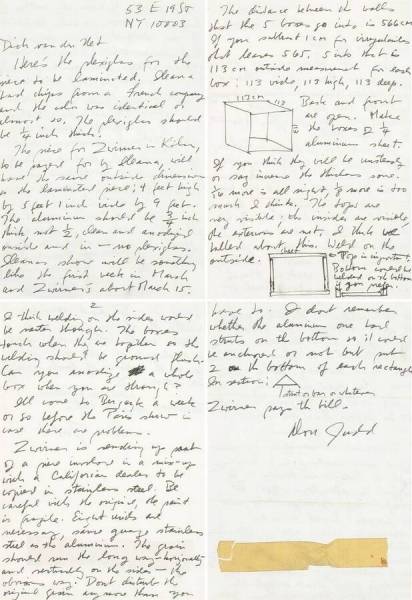 53 E 1950
NY 10003
Dick van der Net
Here's the plexiglas for the
piece to be laminated. Ileana
had chips from a French company
and the color was identical or
almost so. The plexiglas should
be ⅛ inch thick.
The piece for Zwirner in Köln,
to be payed for by Ileana, will
have the same outside dimensions
as the laminated piece; 4 feet high
by 5 feet 1 inch wide by 9 feet.
The aluminum should be inch
thick not ½, clean and anodized
outside and in — no plexiglas.
Ileanas show will be something
like the first week in March
and Zwirner's about March 15.
2
I think welding on the sides would
be neater though. The boxes
touch when they are together so the
welding should be ground flush.
Can you anodize a whole
box when you are through?
I'll come to Bergeyk a week
or so before the Paris show in
case there are problems.
Zwirner is sending you part
of a piece involved in a mix-up
with a Californian dealer to be
copied in stainless steel. Be
careful with the original, the paint
is fragile. Eight units are
necessary, same gauge stainless
steel as the aluminum. The grain
should run the long way - horizontally
and vertically on the sides — the
obvious way. Don't disturb the
original grain any more than you
The distance between the walls
that the 5 boxes go into is 566 cm
If you subtract 1 cm for irregularities
that leaves 565, 5 into that is
113 cm outside measurement for each
box: 113 wide, 113 high, 113 deep.
113 cm
113
Back and front
are open. Make
the boxes of
aluminum sheet.
If you think they will be unsteady
or sag increase the thickness some.
more is all right, more is too
much I think. The tops are
very visible; the insides are visible
the exteriors are not, I think we
talked about this. Weld on the
outside.
Top is important.
Bottom could be
welded on the bottom
if you prefer.
have to. I dont remember
whether the aluminum one had
struts on the bottom so it could
be anchored or not but put
2 on the bottom of each rectangle
In section:
strut or bar or whatever
Zwirner pays the bill.
Don Judd